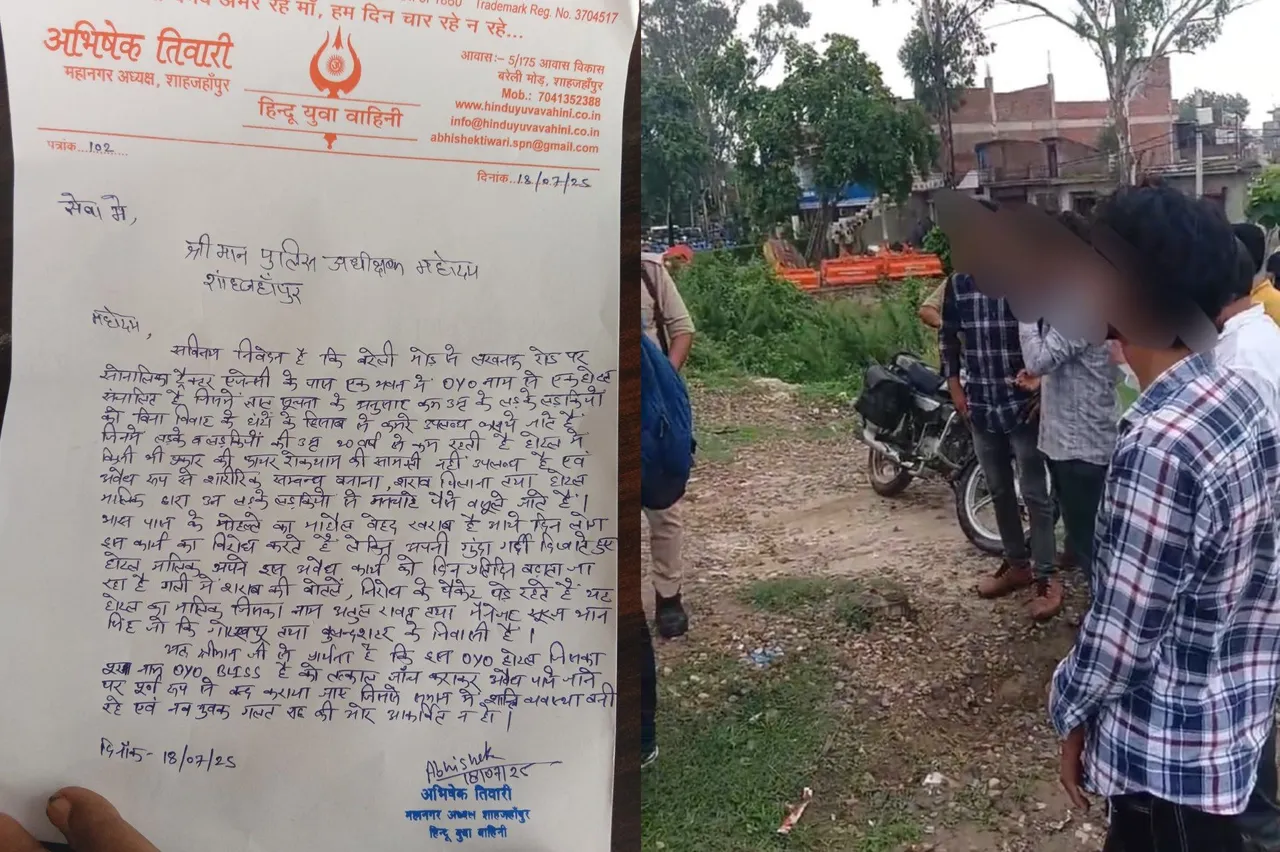 Trademark Reg. No. 3704517
वैभव अमर रहे माँ, हम दिन चार रहे न रहे...
अभिषेक तिवारी
महानगर अध्यक्ष, शाहजहाँपुर
हिन्दू युवा वाहिनी
आवास:- 5/175 आवास विकास
बरेली मोड़, शाहजहाँपुर
Mob.: 7041352388
www.hinduyuvavahini.co.in
info@hinduyuvavahini.co.in
abhishektiwari.spn@gmail.com
पत्रांक...102...
दिनांक...18/07/25
सेवा मे,
श्री मान पुलिस अधीक्षक महोदय
शाहजहाँपुर
महोदय,
सविनय निवेदन है कि बरेली मोड मे लखनऊ रोड पर
सोनालिका ट्रैक्टर एजेन्सी के पास एक भवन मे OYO नाम से एक होटल
संचालित है जिसमे प्राप्त सूचना के अनुसार कम उम्र के लडके लडकियों
को बिना विवाह के घंटों के हिसाब से कमरे उपलब्ध कराये जाते है
जिनमे लडके व लडकियों की उम्र 20 वर्ष से कम रहती है होटल मे
किसी भी प्रकार की फायर रोकथाम की सामग्री नही उपलब्ध है एवं
अवैध रूप से शारीरिक सम्बन्ध बनाना, शराब पिलाना तथा होटल
मालिक द्वारा उन लडके लडकियो से मनचाहे पैसे वसूले जाते है।
आस पास के मोहल्ले का माहौल बेहद खराब है आये दिन लोग
इस कार्य का विरोध करते है लेकिन अपनी गुंडा गर्दी दिखाते हुए
होटल मालिक अपने इस अवैध कार्य को दिन प्रतिदिन बढाता जा
रहा है गली मे शराब की बोतलें, निरोध के पैकेट पडे रहते है यह
होटल का मालिक जिसका नाम अतुल रावत तथा मैनेजर सूरज भान
सिंह जो कि गोरखपुर तथा बुलन्दशहर के निवासी है।
अतः श्रीमान जी से प्रार्थना है कि इस OYO होटल जिसका
नाम OYO BLISS है को तत्काल जाँच कराकर अवैध पाये जाने
पर पूर्ण रूप से बंद कराया जाए जिससे समाज मे शान्ति व्यवस्था बनी
रहे एवं नव युवक गलत राह की ओर आकर्षित न हो।
दिनाँक- 18/07/25
Abhishek
18/07/25
अभिषेक तिवारी
महानगर अध्यक्ष शाहजहाँपुर
हिन्दू युवा वाहिनी